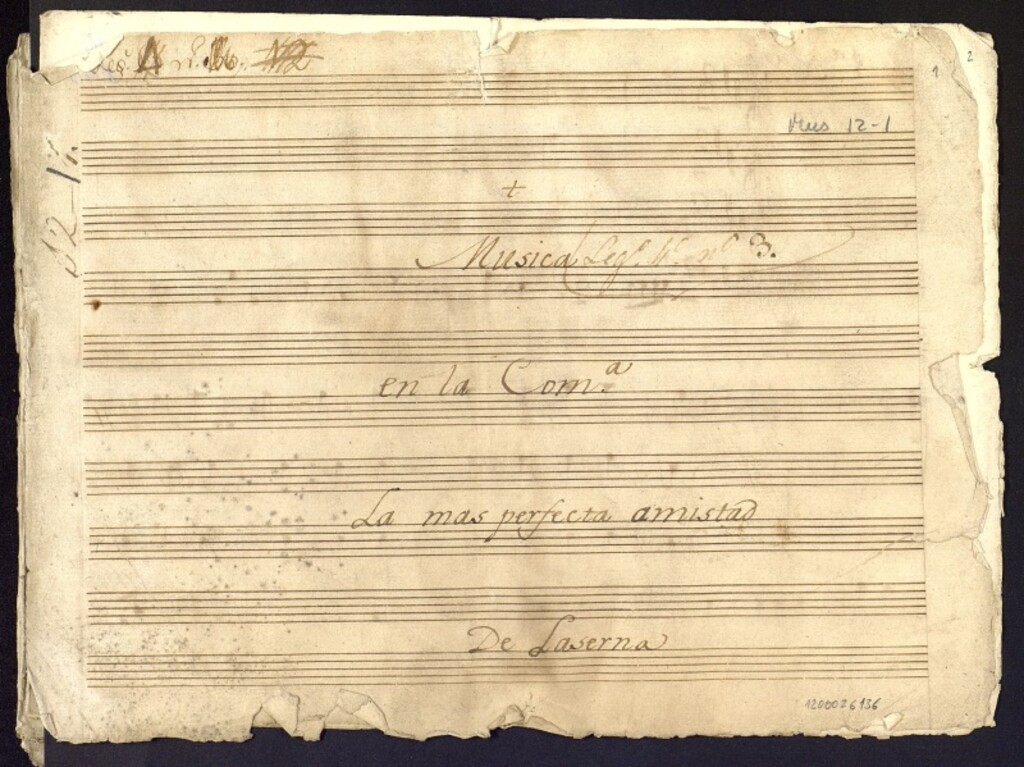 1
2
Mus 12-1
+
Musica Leg.º 4.º nº 3.
en la Com.ª
La mas perfecta amistad
De Laserna
1200026136